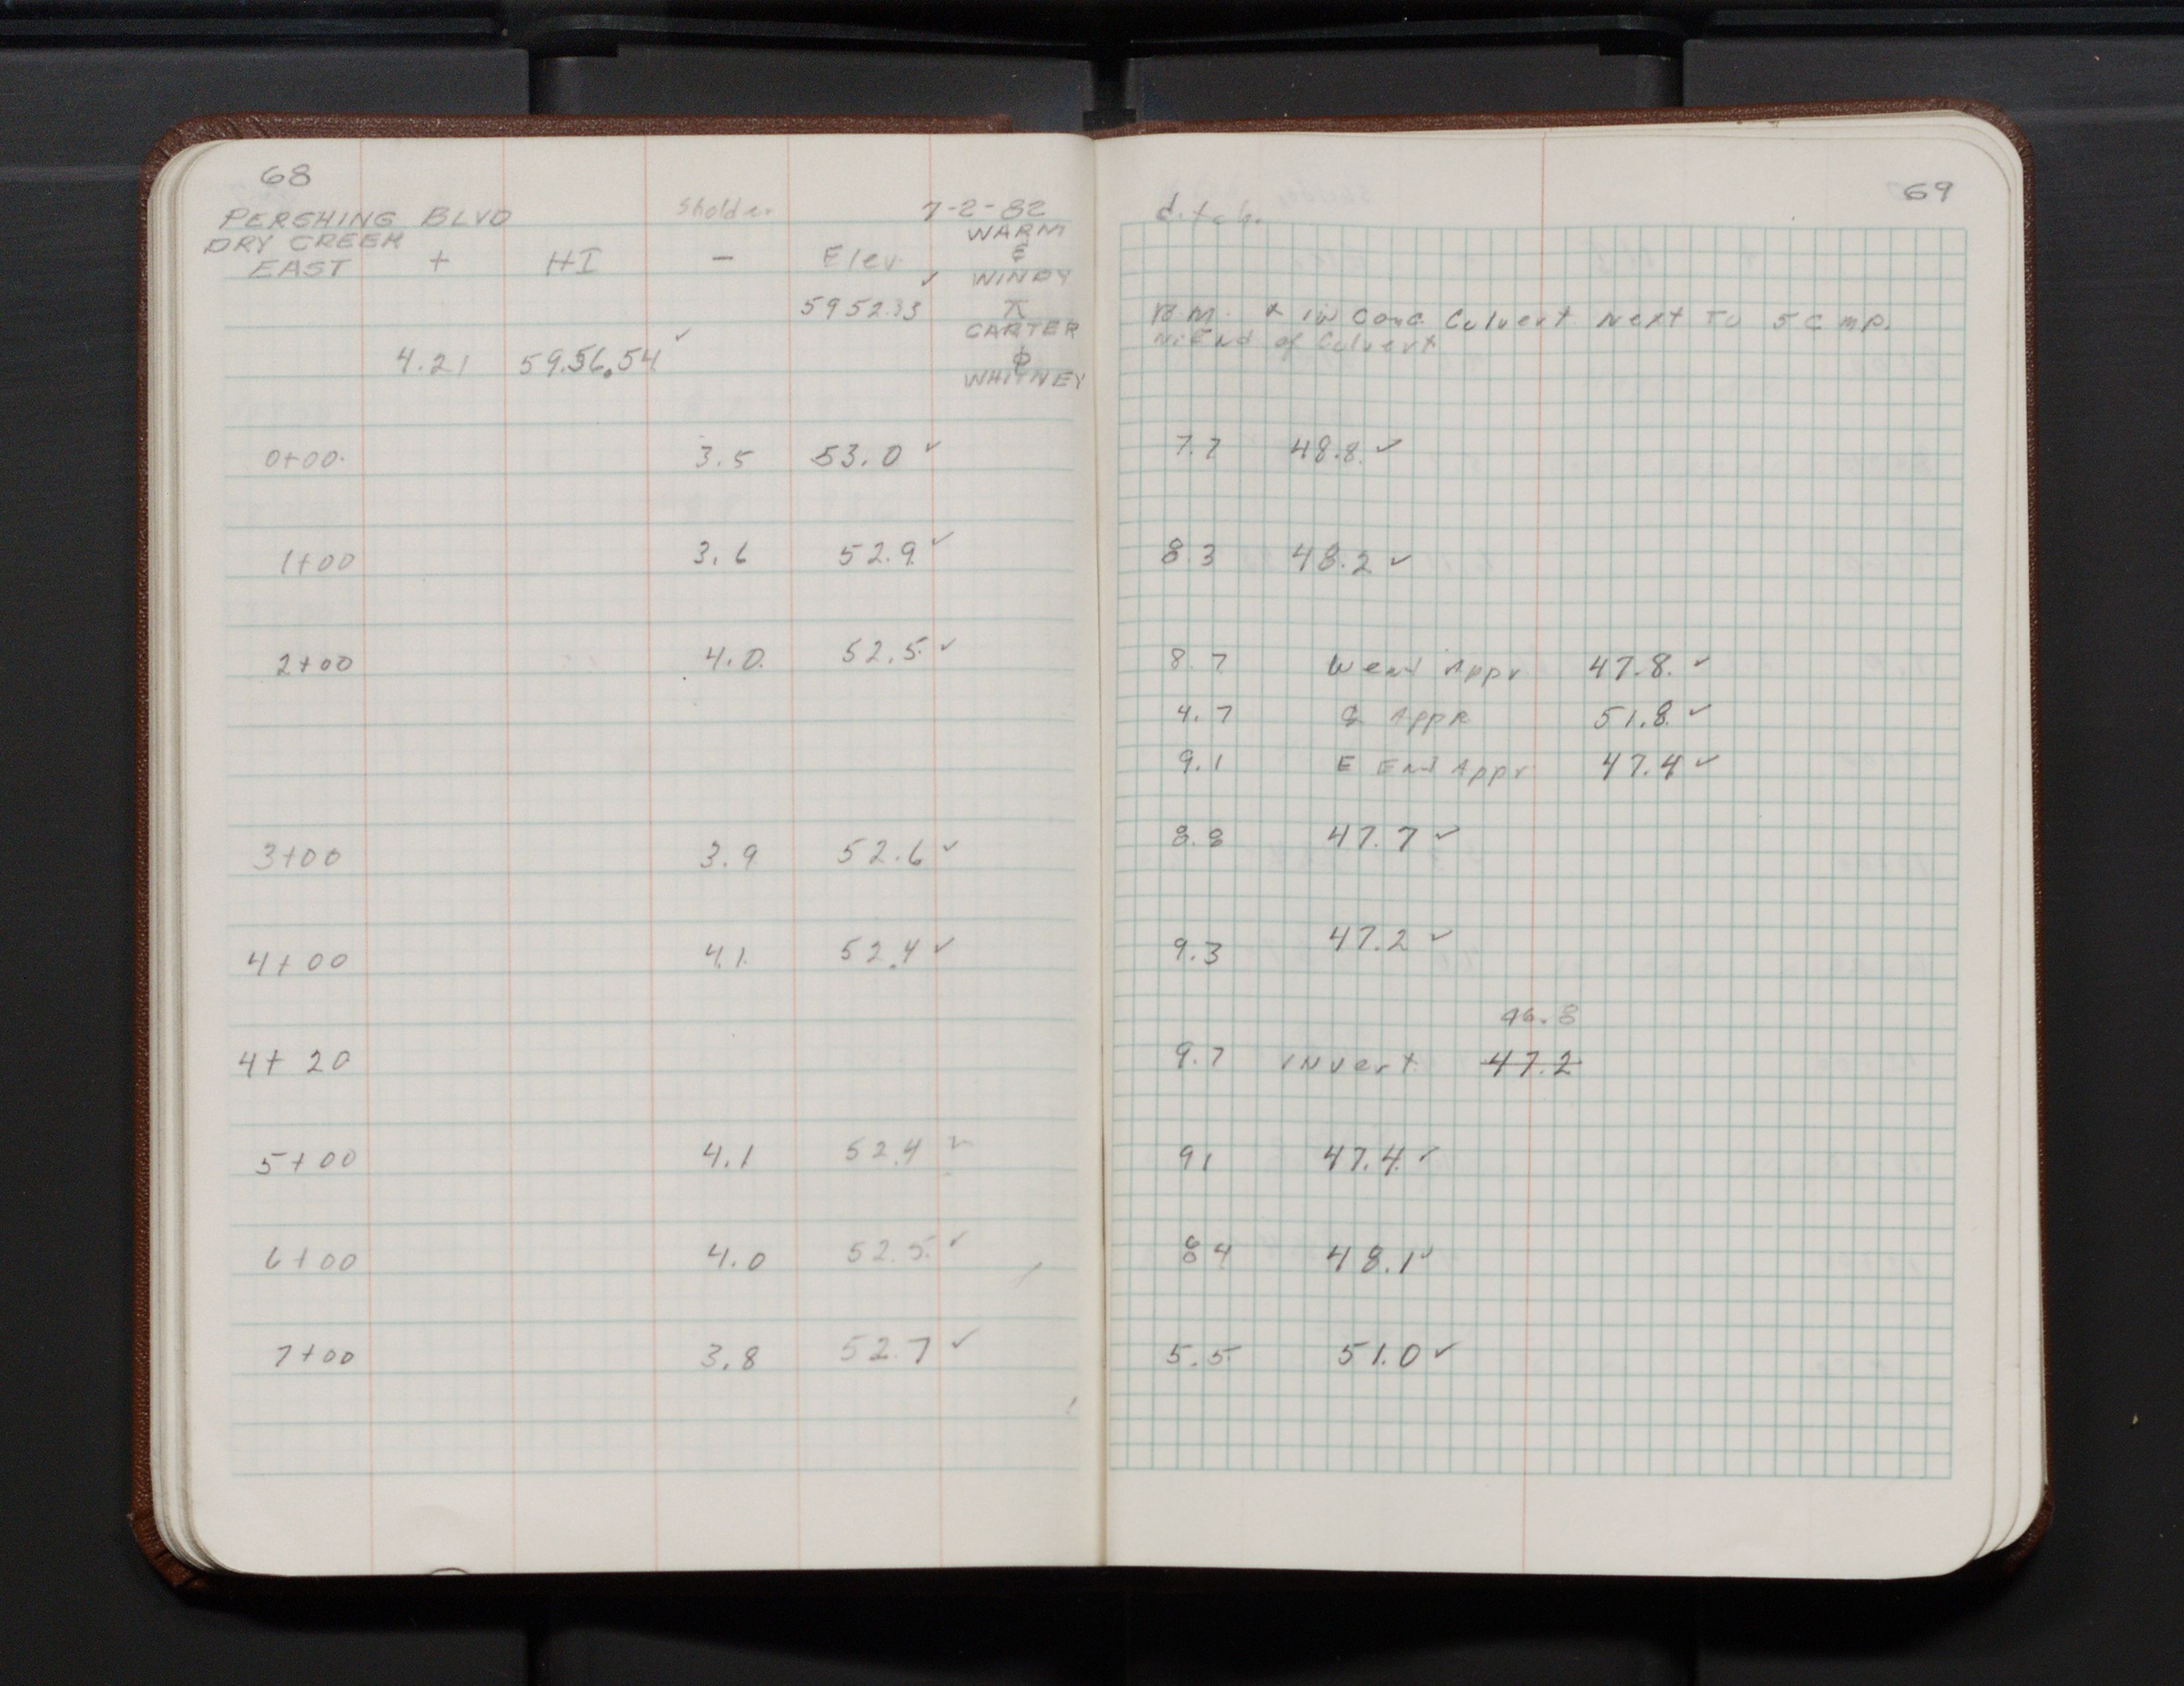 68
PERSHING BLVD Sholder 7-2-82
DRY CREEK WARM
EAST + HI - Elev. &
✓ WINDY
5952.33 ⊼
CARTER
4.21 5956.54 ✓ φ
WHITNEY
0+00 3.5 53.0 ✓
1+00 3.6 52.9 ✓
2+00 4.0 52.5 ✓
3+00 3.9 52.6 ✓
4+00 4.1 52.4 ✓
4+20
5+00 4.1 52.4 ✓
6+00 4.0 52.5 ✓
7+00 3.8 52.7 ✓
69
ditch
B.M. x in Conc. Culvert Next To 5 C mp.
N. End of Culvert
7.7 48.8 ✓
8.3 48.2 ✓
8.7 W end Appr 47.8 ✓
4.7 ℄ Appr 51.8 ✓
9.1 E End Appr 47.4 ✓
8.8 47.7 ✓
9.3 47.2 ✓
46.8
9.7 INvert 47.2
91 47.4 ✓
84 48.1 ✓
5.5 51.0 ✓